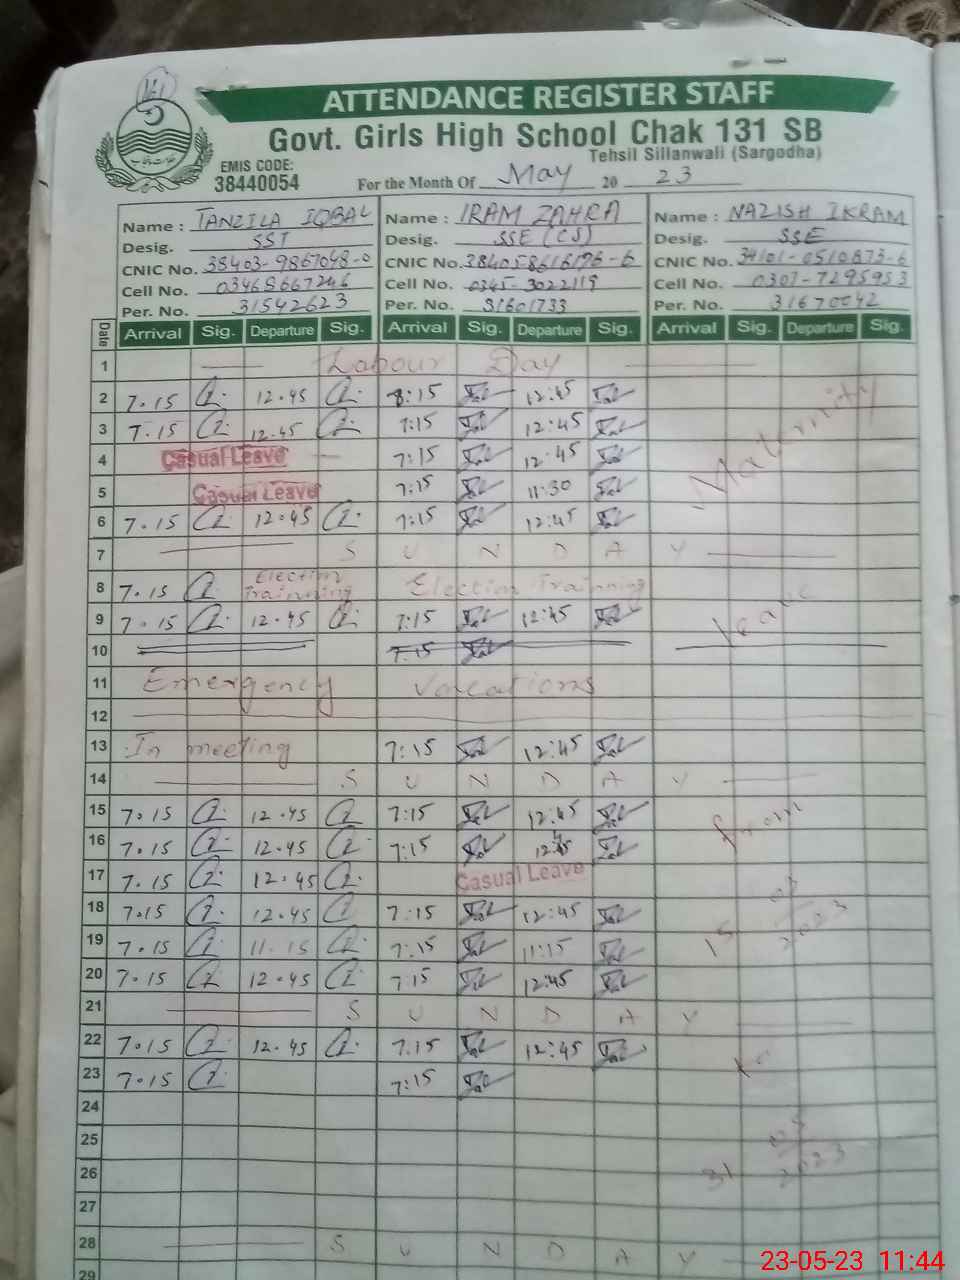 161
ATTENDANCE REGISTER STAFF
Govt. Girls High School Chak 131 SB
Tehsil Sillanwali (Sargodha)
EMIS CODE:
38440054 For the Month Of May 20 23
Name : TANZILA IQBAL Name : IRAM ZAHRA Name : NAZISH IKRAM
Desig. SST Desig. SSE (CS) Desig. SSE
CNIC No. 38403-9867048-0 CNIC No. 384058616196-6 CNIC No. 34101-0510873-6
Cell No. 03468667246 Cell No. 0345-3022119 Cell No. 0301-7295953
Per. No. 31542623 Per. No. 31601733 Per. No. 31670042
Date Arrival Sig. Departure Sig. Arrival Sig. Departure Sig. Arrival Sig. Departure Sig.
1 Labour Day
2 7.15 12.45 8:15 12:45
3 7.15 12.45 7:15 12:45
Maternity
4 Casual Leave 7:15 12:45
5 Casual Leave 7:15 11:30
6 7.15 12.45 7:15 12:45
7 S U N D A Y
8 7.15 Election Trainning Election Trainning
9 7.15 12.45 7:15 12:45
Leave
10 7:15
11 Emergency Vacations
12
13 In meeting 7:15 12:45
14 S U N D A Y
15 7.15 12.45 7:15 12:45
from
16 7.15 12.45 7:15 12:45
17 7.15 12.45 Casual Leave
18 7.15 12.45 7:15 12:45
15 2023
19 7.15 11.15 7:15 11:15
20 7.15 12.45 7:15 12:45
21 S U N D A Y
22 7.15 12.45 7:15 12:45
to
23 7.15 7:15
24
25
31 05 2023
26
27
28 S U N D A Y
29
23-05-23 11:44